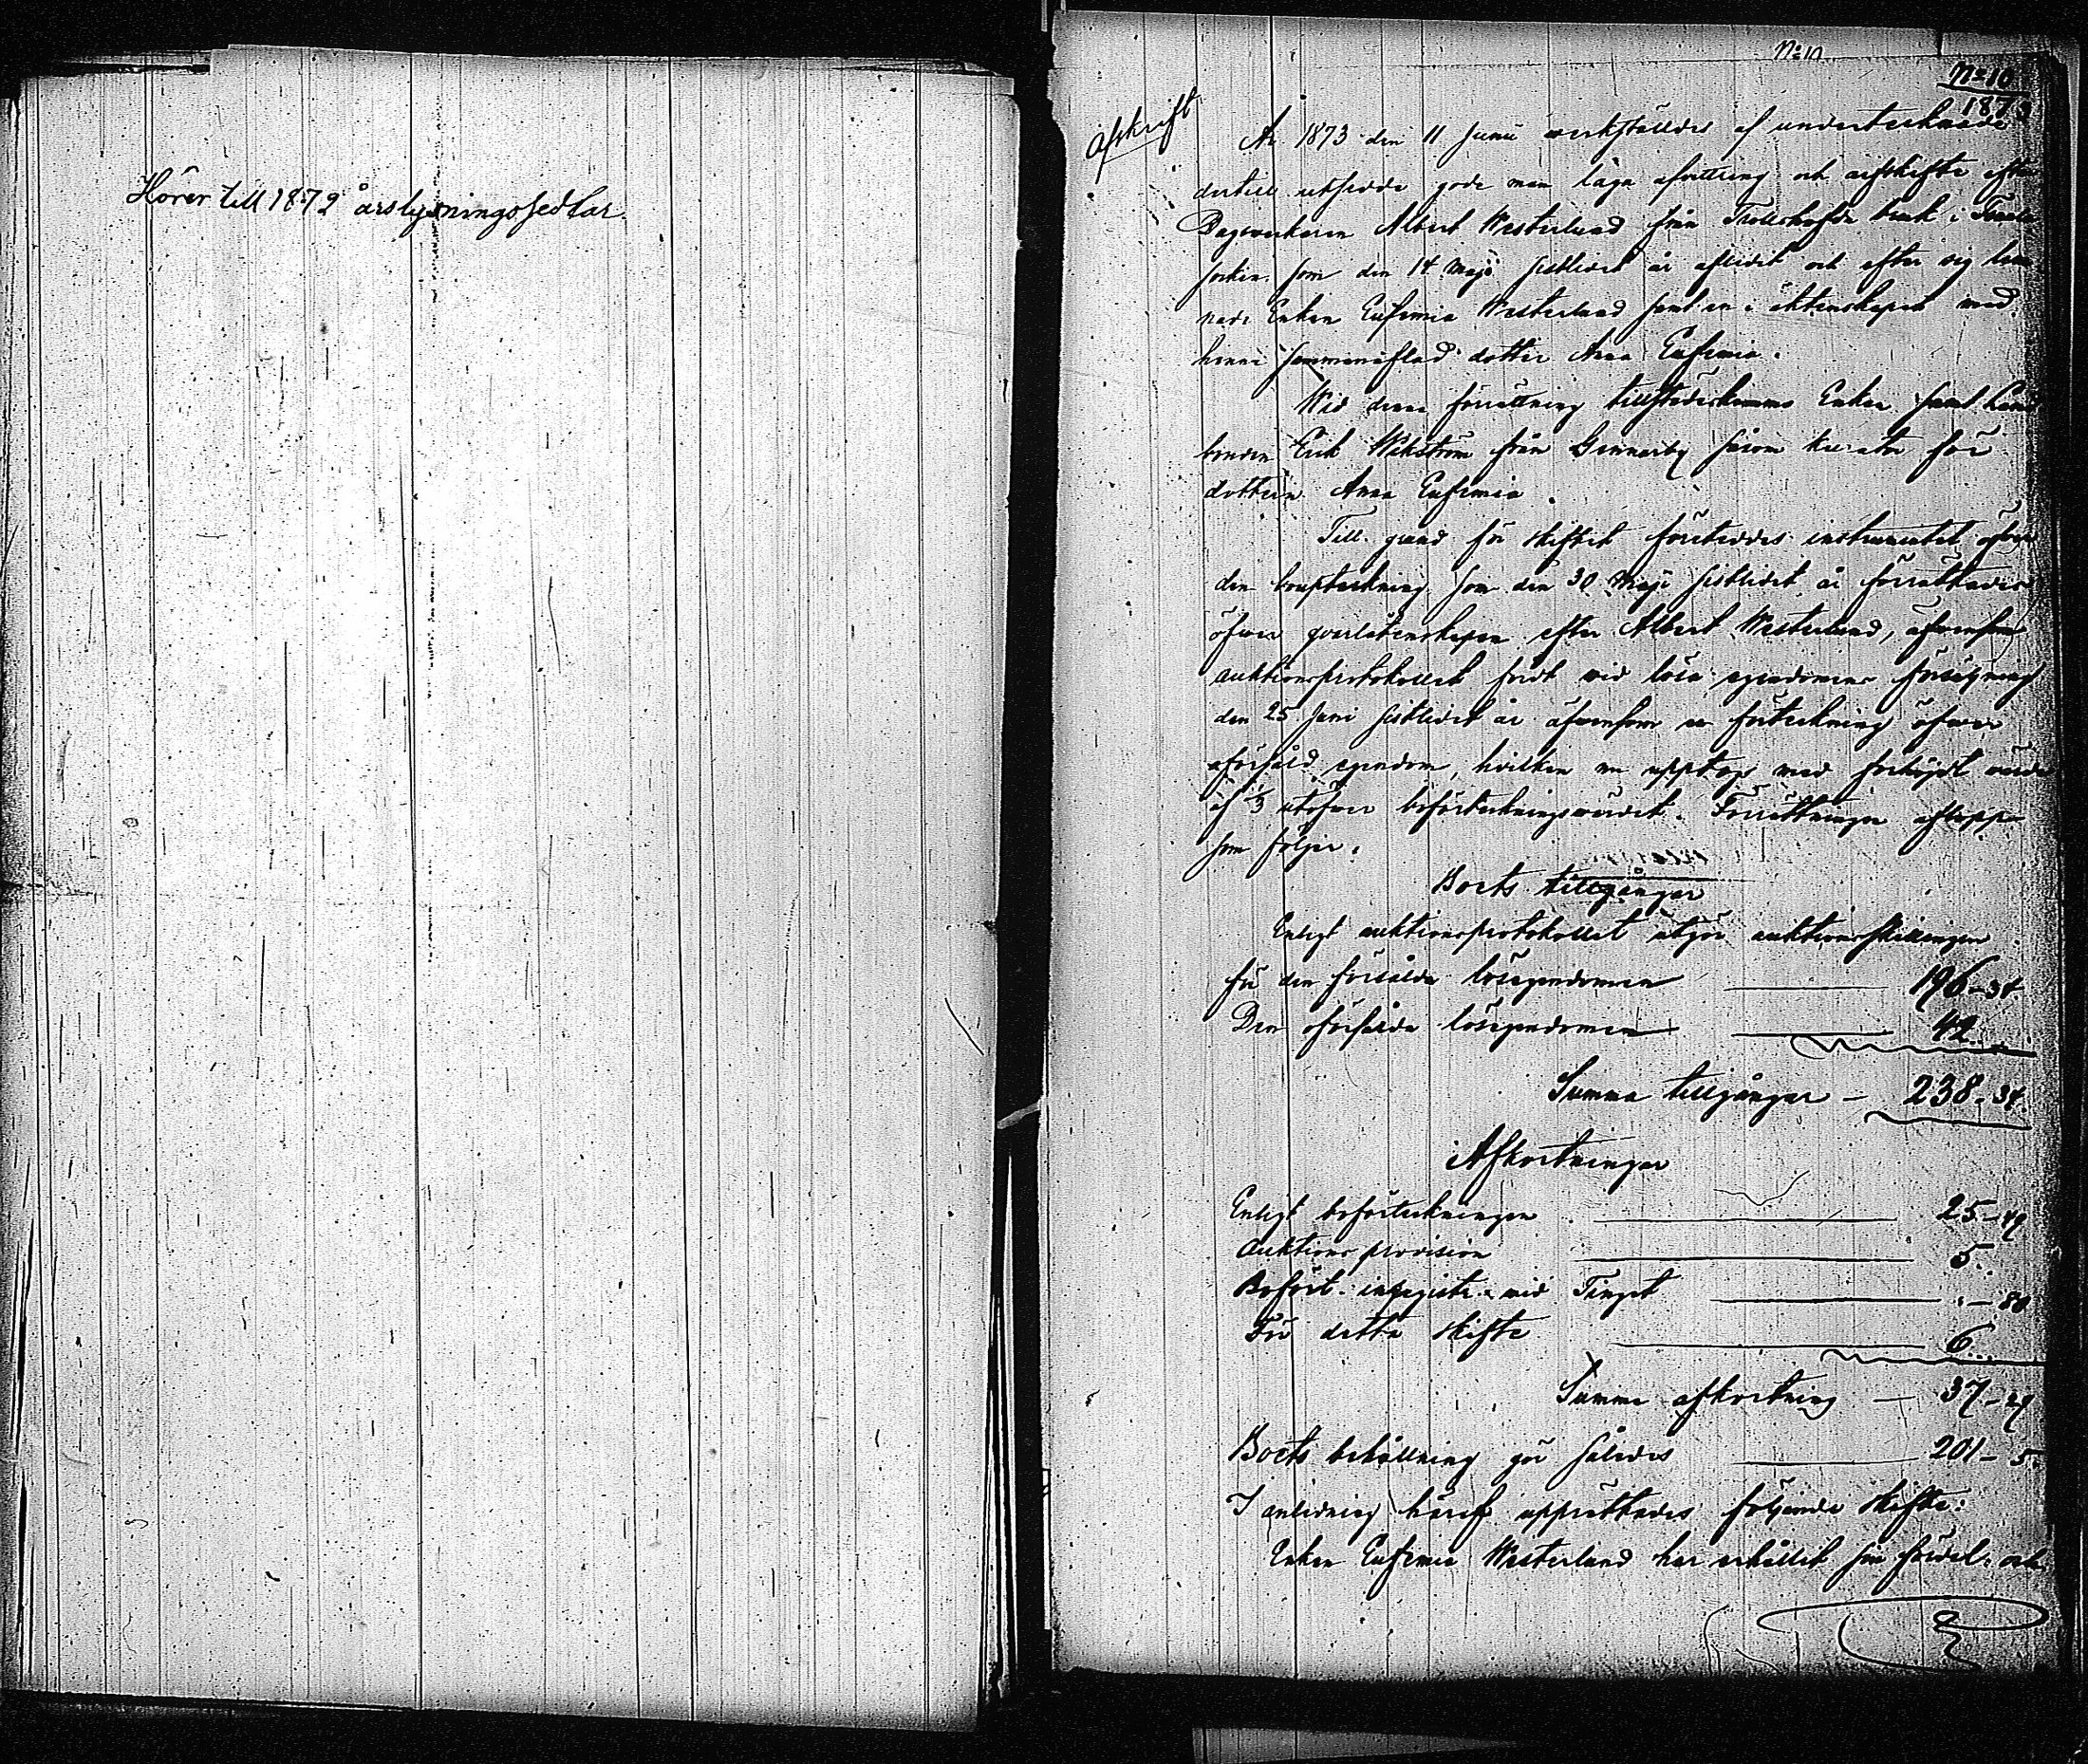 Hörer till 1872 års lysningssedlar.
No 10
No 10
1873
Afskrift
År 1873 den 11 Junii werkstäldes af undertecknade
dertill utsedde gode män laga afvittring och arfskifte efter
Dagsverkaren Albert Westerlund från Trollshofda bruk i Tenala
socken, som den 14 Maji sistlidet år aflidit och efter sig lem
nade Enkan Eufemia Westerlund samt en i äktenskapet med
henne sammanaflad dotter Anna Eufemia.
Wid denna förrättning tillstädeskommo Enkan samt
bonden Erik Wikström från Gennarby såsom kurator för
dottren Anna Eufemia.
Till grund för skiftet företeddes instrumentet öfver
den bouptekning som den 30 Maji sistlidet år förrättades
öfwer qvarlåtenskapen efter Albert Westerlund, äfwensom
auktionsprotokollet fördt wid lösa egendomens försäljning
den 25 Juni sistlidet år äfwensom en förtekning öfwer
oförsåld egendom, hvilken nu upptogs med förhöjdt värde
af 1/3 utöfwer boförtekningsvärdet. Förrättningen aflopp
som följer.
Boets tillgångar
Enligt auktionsprotokollet utgör auktionsskillingen
för den försålda lösegendomen 196-34.
Den oförsålda lösegendomen 42..
Summa tillgångar - 238-34.
Afkortningar
Enligt boförtekningen 25-49
Auktions provision 5..
Bofört. ingrigistr. vid Tinget .-80
För detta skifte 6..
Summa afkortning - 37-29
Boets behållning gör således 201-5.
I anledning häraf upprättades följande skifte:
Enkan Eufemia Westerlund har erhållit sin fördel och